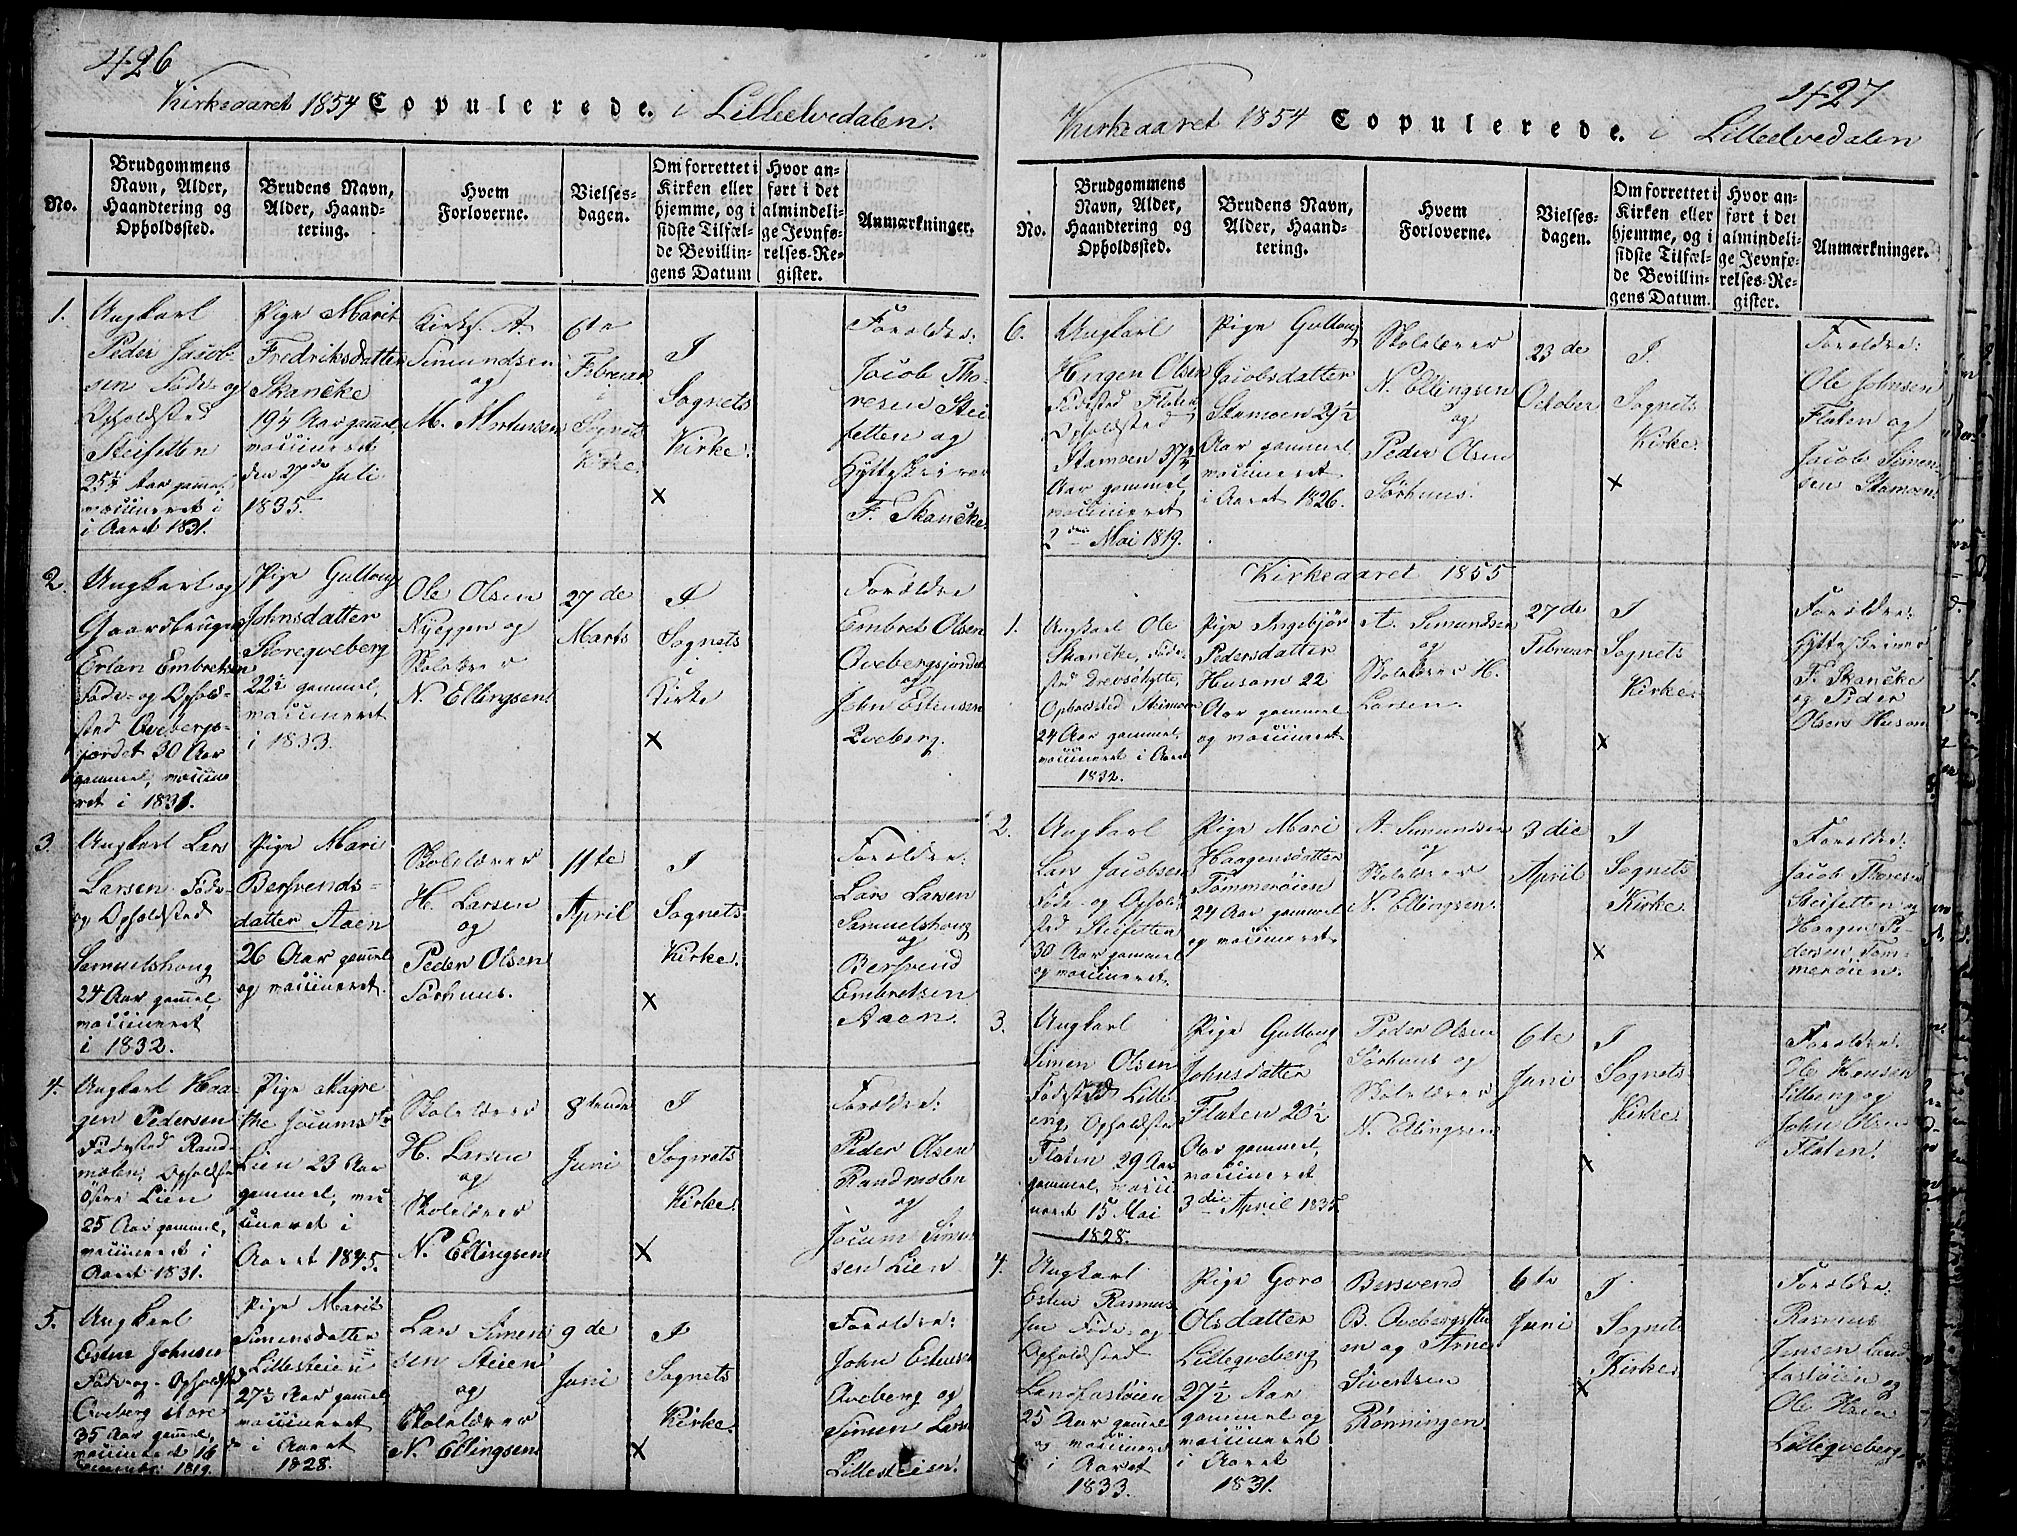 426
Kirkeaaret 1854 Copulerede. i Lilleelvedalen.
No.
Brudgommens
Navn, Alder,
Haandtering og
Opholdssted.
Brudens Navn,
Alder, Haand-
tering.
Hvem
Forloverne.
Vielses-
dagen.
Om forrettet i
Kirken eller
hjemme, og i
sidste Tilfæl-
de Bevillin-
gens Datum
Hvor an-
ført i det
almindeli-
ge Jevnfø-
relses-Re-
gister.
Anmærkninger.
1.
Ungkarl
Peder Jacob-
sen Føde- og
Opholdsted
Steifetten
25½ Aar gammel,
vaccineret i
i Aaret 1831.
Pige Marit
Fredriksdatter
Skancke
19¼ Aar gammel,
vaccineret
den 27de Juli
1835.
Kirks. A.
Simundsen
og
M. Mortensen
6te
Februar
i
Sognets
Kirke.
I
Sognets
Kirke.
x
Forældre:
Jacob Tho-
resen Stei
fetten og
Hytteskriver
F. Skancke
2.
Ungkarl og
Gaardbruger
Erlan Embretsen
Føde- og Ophold-
sted Qvebergs-
jordet 30 Aar
gammel, vaccine
ret i 1831.
Pige Gullaug
Johnsdatter
Storeqveberg
22½ gammel,
vaccineret
i 1833.
Ole Olsen
Nyeggen og
Skolelærer
N. Ellingsen.
27de
Marts
I
Sognets
Kirke
x
Forældre
Embret Olsen
Qvebergsjordet
og
John Estensen
Qveberg.
3.
Ungkarl Lars
Larsen Føde-
og Opholdsted
Samuelshoug
24 Aar gammel,
vaccineret
i 1832.
Pige Mari
Bersvends-
datter Aaen
26 Aar gammel
og vaccineret.
Skolelærer
H. Larsen
og
Peder Olsen
Sørhuus.
11te
April
I
Sognets
Kirke.
x
Forældre:
Lars Larsen
Samuelshoug
og
Bersvend
Embretsen
Aaen.
4.
Ungkarl Haa-
gen Pedersen
Fødested Rand-
molen, Opholdsted
østre Lien
25 Aar gammel,
vaccineret i
Aaret 1831.
Pige Magre
the Jocumsdr
Lien 23 Aar
gammel, vac
cineret i
Aaret 1845.
Skolelærer
H. Larsen
og
Skolelærer
N. Ellingsen
8tende
Juni
I
Sognets
Kirke.
x
Forældre:
Peder Olsen
Randmolen
og
Jocum Simen
sen Lien
5.
Ungkarl
Esten Johnsen
Føde- og Opholdsted
Qveberg store
35 Aar gammel,
vaccineret 16
1819.
Pige Marit
Simensdatter
Lillesteien
27½ Aar gammel
vaccineret
i Aaret
1828.
Lars Simen
sen Steien
og
Skolelærer
N. Ellingsen
9de
Juni
I
Sognets
Kirke.
x
Forældre:
John Estensen
Qveberg og
Simen Larsen
Lillesteien.
427
Kirkeaaret 1854 Copulerede. i Lilleelvedalen
No.
Brudgommens
Navn, Alder,
Haandtering og
Opholdssted.
Brudens Navn,
Alder, Haand-
tering.
Hvem
Forloverne.
Vielses-
dagen.
Om forrettet i
Kirken eller
hjemme, og i
sidste Tilfæl-
de Bevillin-
gens Datum.
Hvor an-
ført i det
almindeli-
ge Jevnfø-
relses-Re-
gister.
Anmærkninger.
6.
Ungkarl
Haagen Olsen
Fødested Flaten
Opholdsted
Stamoen 37¾
Aar gammel
vaccineret
2den Mai 1819.
Pige Gullaug
Jacobsdatter
Stamoen 29½
Aar gammel
vaccineret
i Aaret 1826.
Skolelærer
N. Ellingsen
og
Peder Olsen
Sørhuus.
23de
October
I.
Sognets
Kirke.
x
Forældre:
Ole Johnsen
Flaten og
Jacob Simen-
sen Stamoen.
Kirkeaaret 1855
1.
Ungkarl Ole
Skancke, Føde-
sted Drevschytte,
Opholdsted Steimoen
24 Aar gammel,
vaccineret i Aaret
1832.
Pige Ingebjør
Pedersdatter
Husom 22
Aar gammel
og vaccineret.
A. Simundsen
og
Skolelærer H.
Larsen.
27de
Februar
I
Sognets
Kirke.
x
Forældre:
Hytteskriver
F. Skancke
og Peder
Olsen Husom
2.
Ungkarl
Lars Jacobsen
Føde- og Ophold-
sted Steifetten
30 Aar gammel
og vaccineret.
Pige Mari
Haagensdatter
Tømmerøien
24 Aar gammel
og vaccineret.
A. Simundsen
og
Skolelærer
N. Ellingsen.
3die
April
I
Sognets
Kirke.
x
Forældre:
Jacob Thoresen
Steifetten og
Haagen Pe-
dersen Tøm-
merøien.
3.
Ungkarl
Simen Olsen
Fødested Lille-
eng, Opholdsted
Flaten 29 Aar
gammel, vacci
neret 15 Mai
1828.
Pige Gullaug
Johnsdatter
Flaten 20½
Aar gammel,
vaccineret
3die April 1835.
Peder Olsen
Sørhuus og
Skolelærer
N. Ellingsen
6te
Juni
I
Sognets
Kirke.
x
Forældre:
Ole Hansen
Lilleeng og
John Olsen
Flaten.
4.
Ungkarl
Esten Rasmus
sen Føde- og
Opholdsted
Landfastøien
25 Aar gammel
og vaccineret
i Aaret
1833.
Pige Goro
Olsdatter
Lilleqveberg
27½ Aar
gammel og
vaccineret
i Aaret
1831.
Bersvend
B. Qvebergstu
en og Arne
Sivertsen
Rønningen
6te
Juni
I.
Sognets
Kirke
x
Forældre:
Rasmus
Jensen Land
fastøien og
Ole Hansen
Lilleqveberg